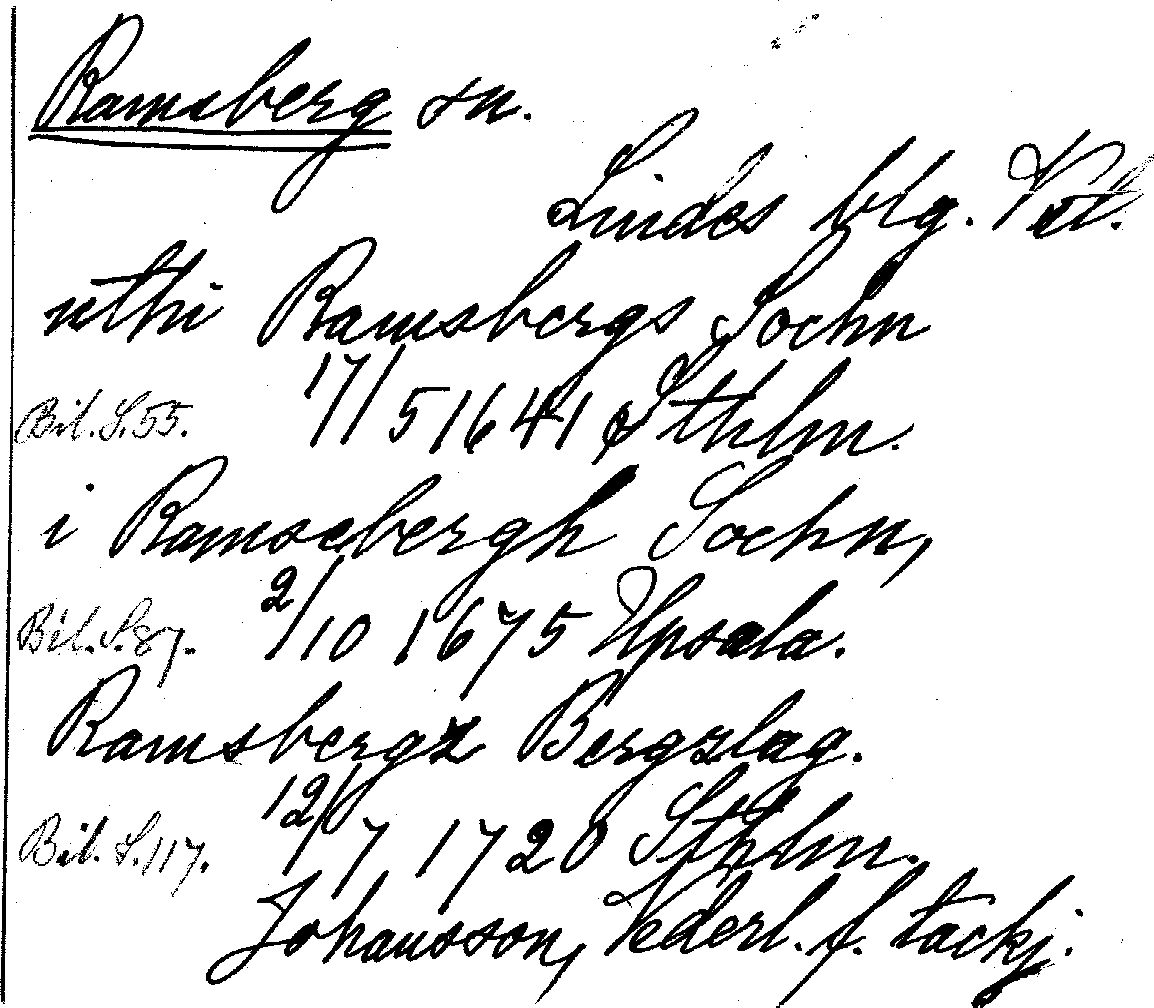 Ramsberg sn.
Lindes blg. Vstl.
uthi Ramsbergs Sochn
Bil. S. 55. 17/5 1641 Sthlm.
i Ramsebergh Sochn,
Bil. S. 87. 2/10 1675 Upsala.
Ramsbergz Bergzlag.
Bil. S. 117. 12/7 1720 Sthlm.
Johansson, Vederl. f. tackj.